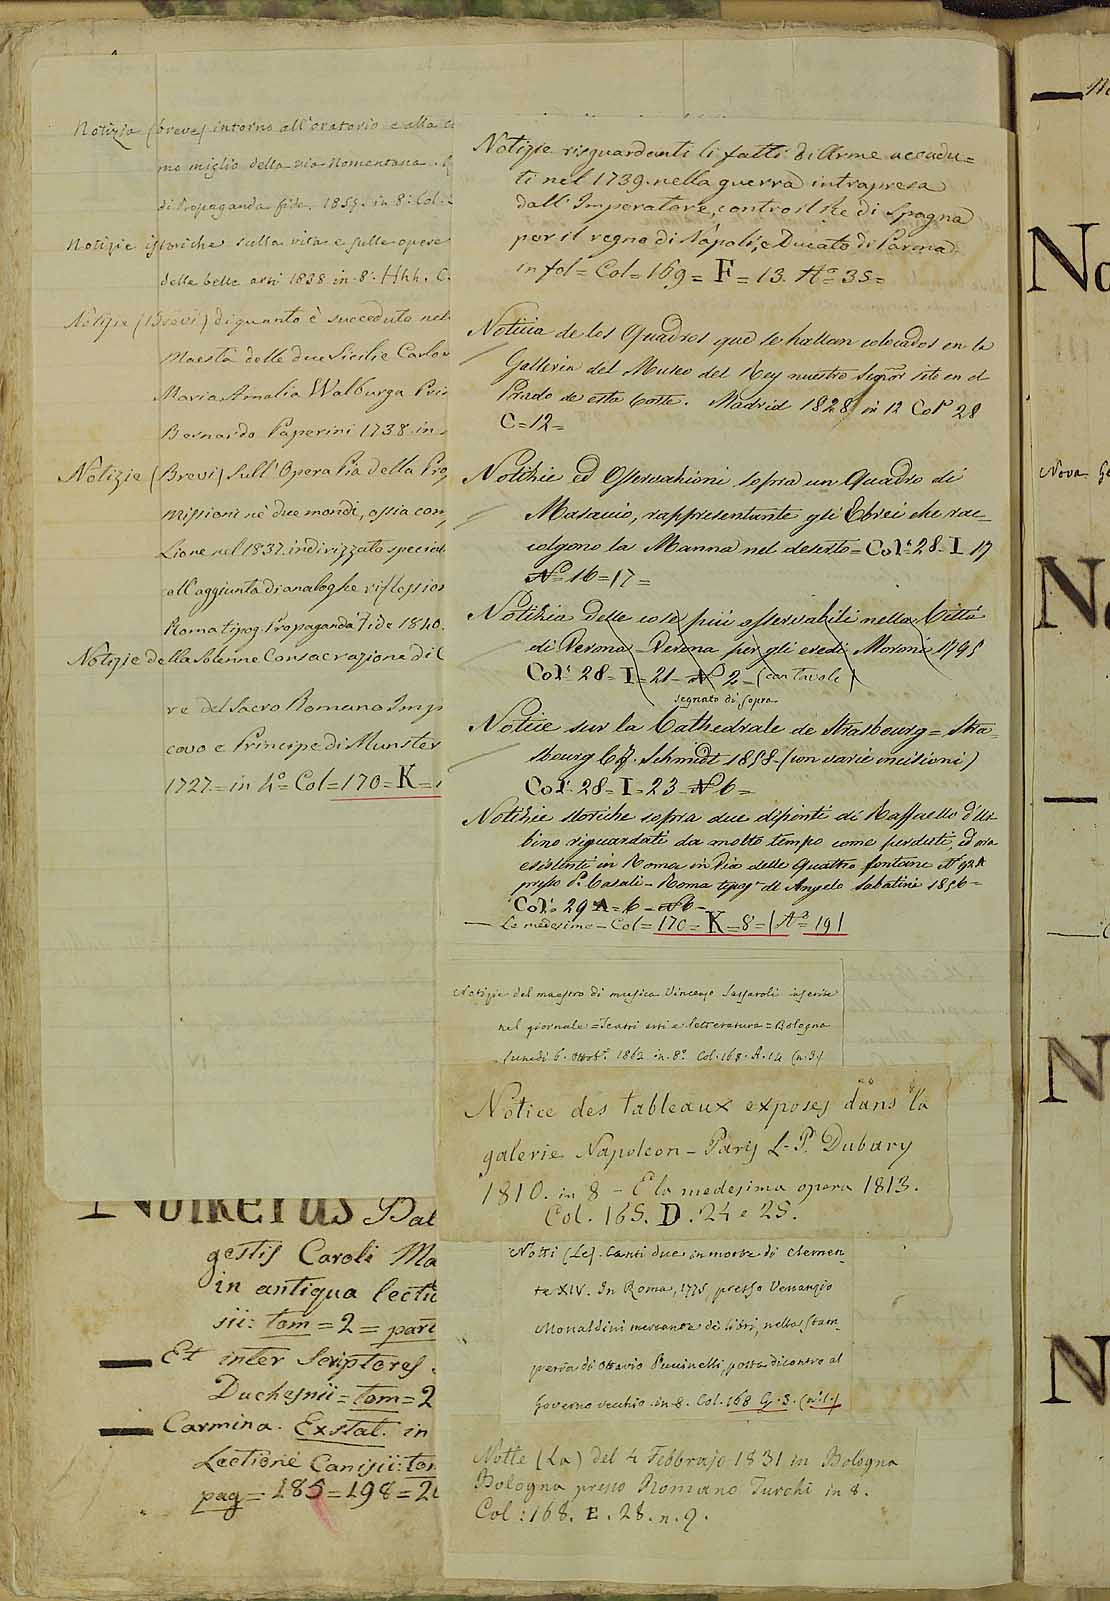 Notizia (breve) intorno all'oratorio e alla
mo miglio della via Nomentana.
di Propaganda fide. 1857. in 8. Col.
Notizie istoriche sulla vita e sulle opere
delle belle arti 1838 in 8. Hhh. C.
Notizie (Brevi) di quanto è succeduto nel
Maestà delle due Sicilie Carlo
Maria Amalia Walburga
Bernardo Paperini 1738 in
Notizie (Brevi) sull'Opera Pia della
Missioni nè due mondi, ossia
Lione nel 1837. indirizzato
all'aggiunta di analoghe riflession
Roma tipog. Propaganda Fide 1840.
Notizie della solenne Consacrazione di
re del Sacro Romano
covo e Principe di Munster
1727 = in 4º = Col = 170 = K =
Notkerus Bal
gestis Caroli Ma
in antiqua lectio
sii: tom = 2 = part
— Et inter Scriptores
Duchesnii = tom = 2
— Carmina. Exstat. in
Lectione Canisii: tom
pag = 185 = 198 =
Notizie risguardanti li fatti di Arme accadu=
ti nel 1739. nella guerra intrapresa
dall'Imperatore, contro il Re di Spagna
per il regno di Napoli, e Ducato di Parma
in fol = Col = 169 = F = 13. Nº 35 =
Noticia de los Quadros que se hallan colocados en la
Galleria del Museo del Rey nuestro Señor sito en el
Prado de esta Corte. Madrid 1828 in 12 Colº 28
C = 12 =
Notizie ed Osservazioni sopra un Quadro di
Masaccio, rappresentante gli Ebrei che rac-
colgono la Manna nel deserto = Col. 28 - I 17
Nº 16 = 17 =
Notizia delle cose più osservabili nella Città
di Verona - Verona per gli eredi Moroni 1795
Col. 28 - I = 21 - Nº 2 - (con tavole)
segnato di sopra
Notice sur la Cathedrale de Strasbourg = Stra-
sbourg Schmidt 1858 - (con varie incisioni)
Col. 28 - I = 23 - Nº 6 =
Notizie storiche sopra due dipinti di Raffaello d'Ur
bino riguardati da molto tempo come perduti, ed ora
esistenti in Roma in Via delle Quattro fontane
presso Casali - Roma tipog. di Angelo Sabatini 1856 =
Col. 29 A = 6 - Nº 6 -
— Le medesime - Col = 170 = K = 8 = | Nº = 19 |
Notizie del maestro di musica Vincenzo Sassaroli inserite
nel giornale = Teatri arti e letteratura = Bologna
lunedì 6. ottob. 1862 in 8º Col. 168. A. 14 (n. 3)
Notice des tableaux exposés dans la
galerie Napoleon - Paris L. P. Dubary
1810. in 8 - E la medesima opera 1813.
Col. 165. D. 24 e 25.
Notti (Le). Canti due in morte di Clemen
te XIV. In Roma, 1775, presso Venanzio
Monaldini mercante di libri, nella Stam
peria di Ottavio Puccinelli, posta dicontro al
Governo vecchio in 8. Col. 168 G. 3. (n. 1.)
Notte (La) del 4 Febbrajo 1831 in Bologna
Bologna presso Romano Turchi in 8.
Col: 168. E. 28. n. 9.
Nova